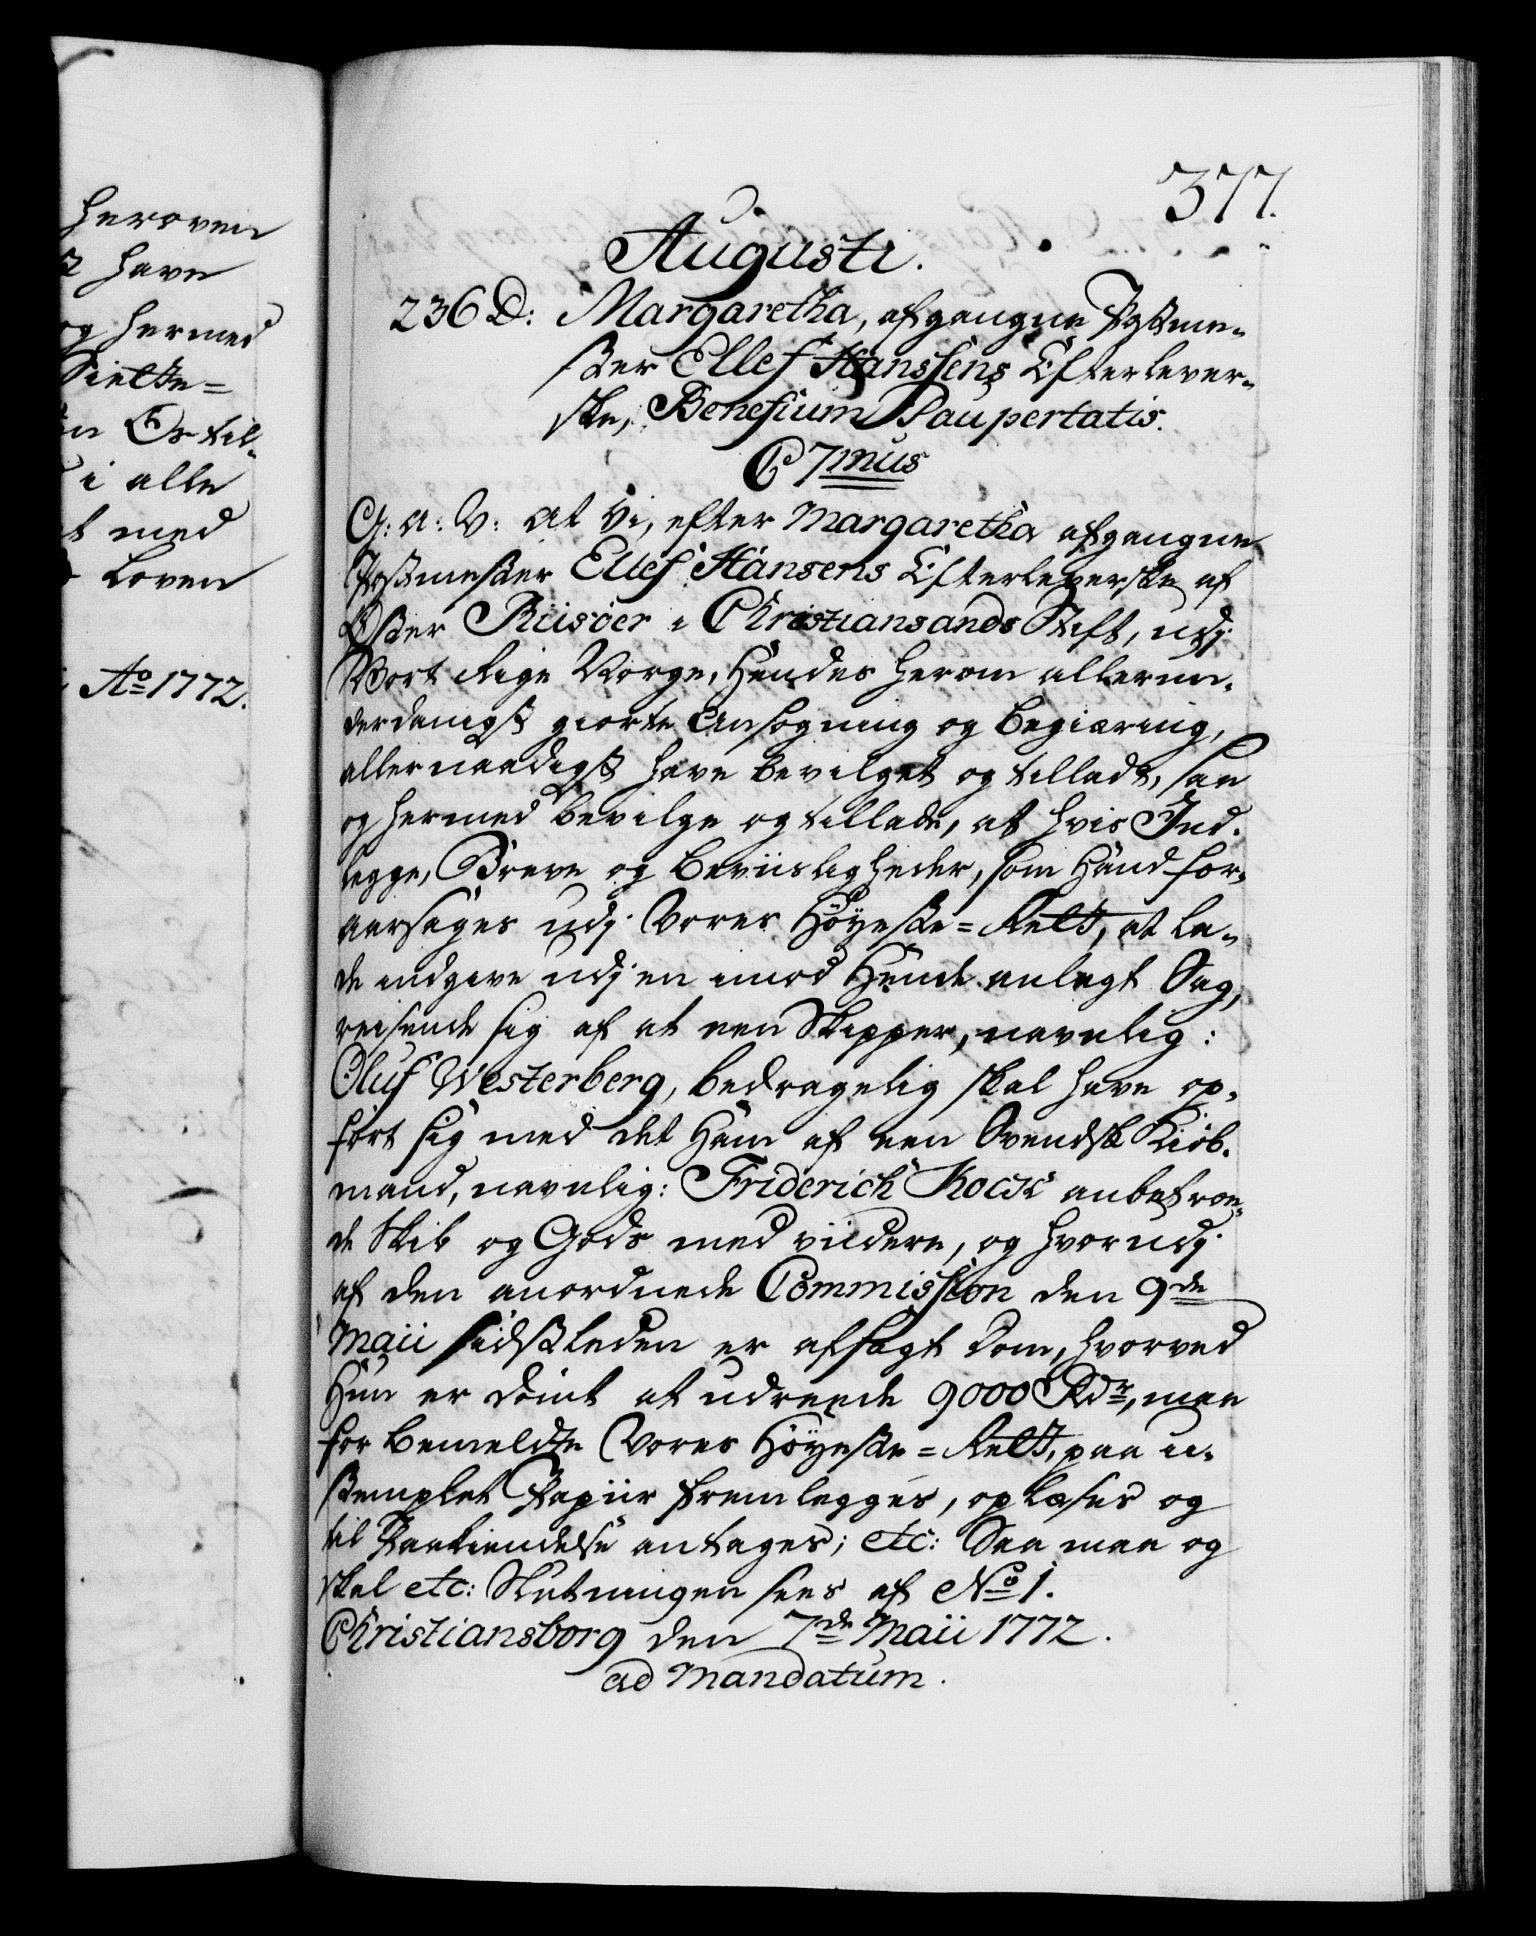 heroven
have
og hermed
i alle
med
Loven
Ao 1772.
377.
Augusti.
236 D: Margaretha, afgangne Postme-
ster Ellef Hanssens Efterlever-
ske, Benefium Paupertatis.
C 7mus
G: A: V: At Vi, efter Margaretha afgangne
Postmester Ellef Hansens Efterleverske af
Øster Riisöer i Christiansands Stift, udj
Vort Rige Norge, Hendes herom allerun-
derdanigst giorte Ansøgning og Begiæring,
allernaadigst have bevilget og tilladt, saa
og hermed bevilge og tillade, at hvis Ind-
legge, Breve og Beviisligheder, som Hund for-
aarsages udj Vores Höyeste-Rett, at la-
de indgive udj en imod Hende anlagt Sag,
reisende sig af at een Skipper, navnlig:
Oluf Westerberg, bedragelig skal have op-
ført sig med det Ham af een Svendsk Kiøb-
mand, navnlig: Friderich Kock anbetroe-
de Skib og Gods med viidere, og hvorudj
af den anordnede Commission den 9de
Maii sidstleden er afsagt Dom, hvorved
Hun er dømt at udreede 9000 Rdr, maa
for bemeldte Vores Höyeste-Rett, paa u-
stemplet Papiir fremlegges, oplæses og
til Paakiendelse antages; etc: Saa maa og
skal etc: Slutningen sees af No 1.
Christiansborg den 7de Maii 1772.
ad Mandatum.